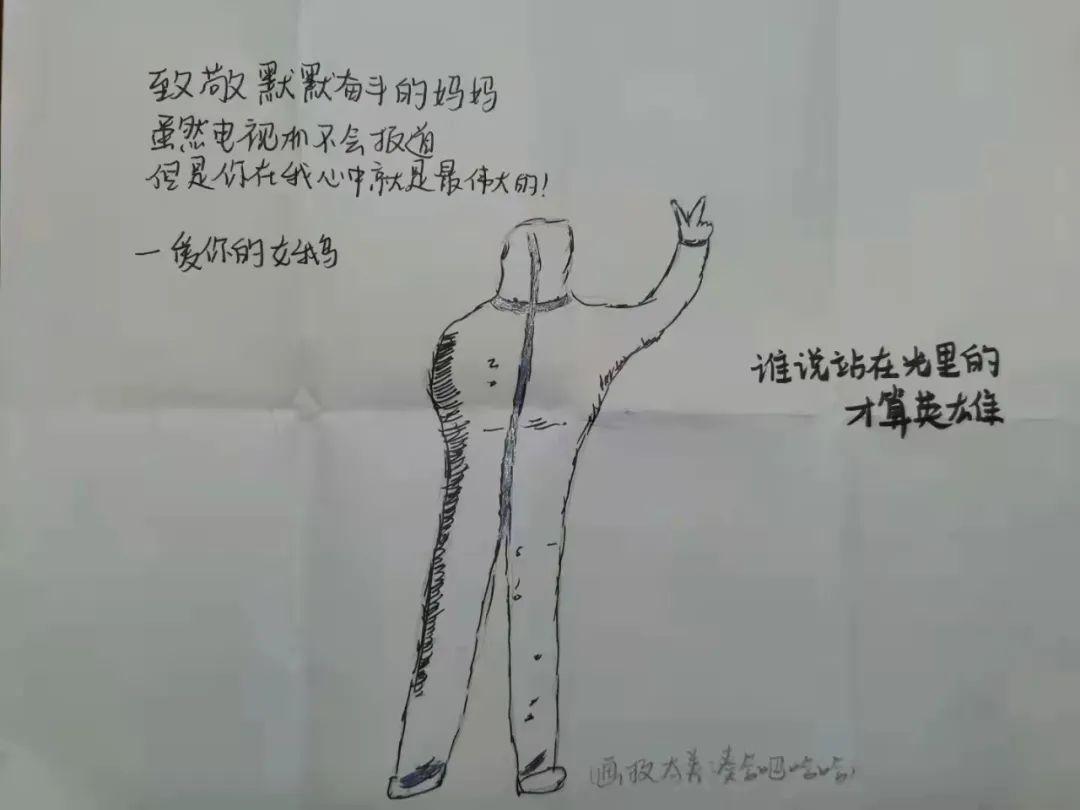 致敬默默奋斗的妈妈
虽然电视机不会报道
但是你在我心中就是最伟大的!
一爱你的女鹅
谁说站在光里的
才算英雄
画技太差凑合吧哈哈